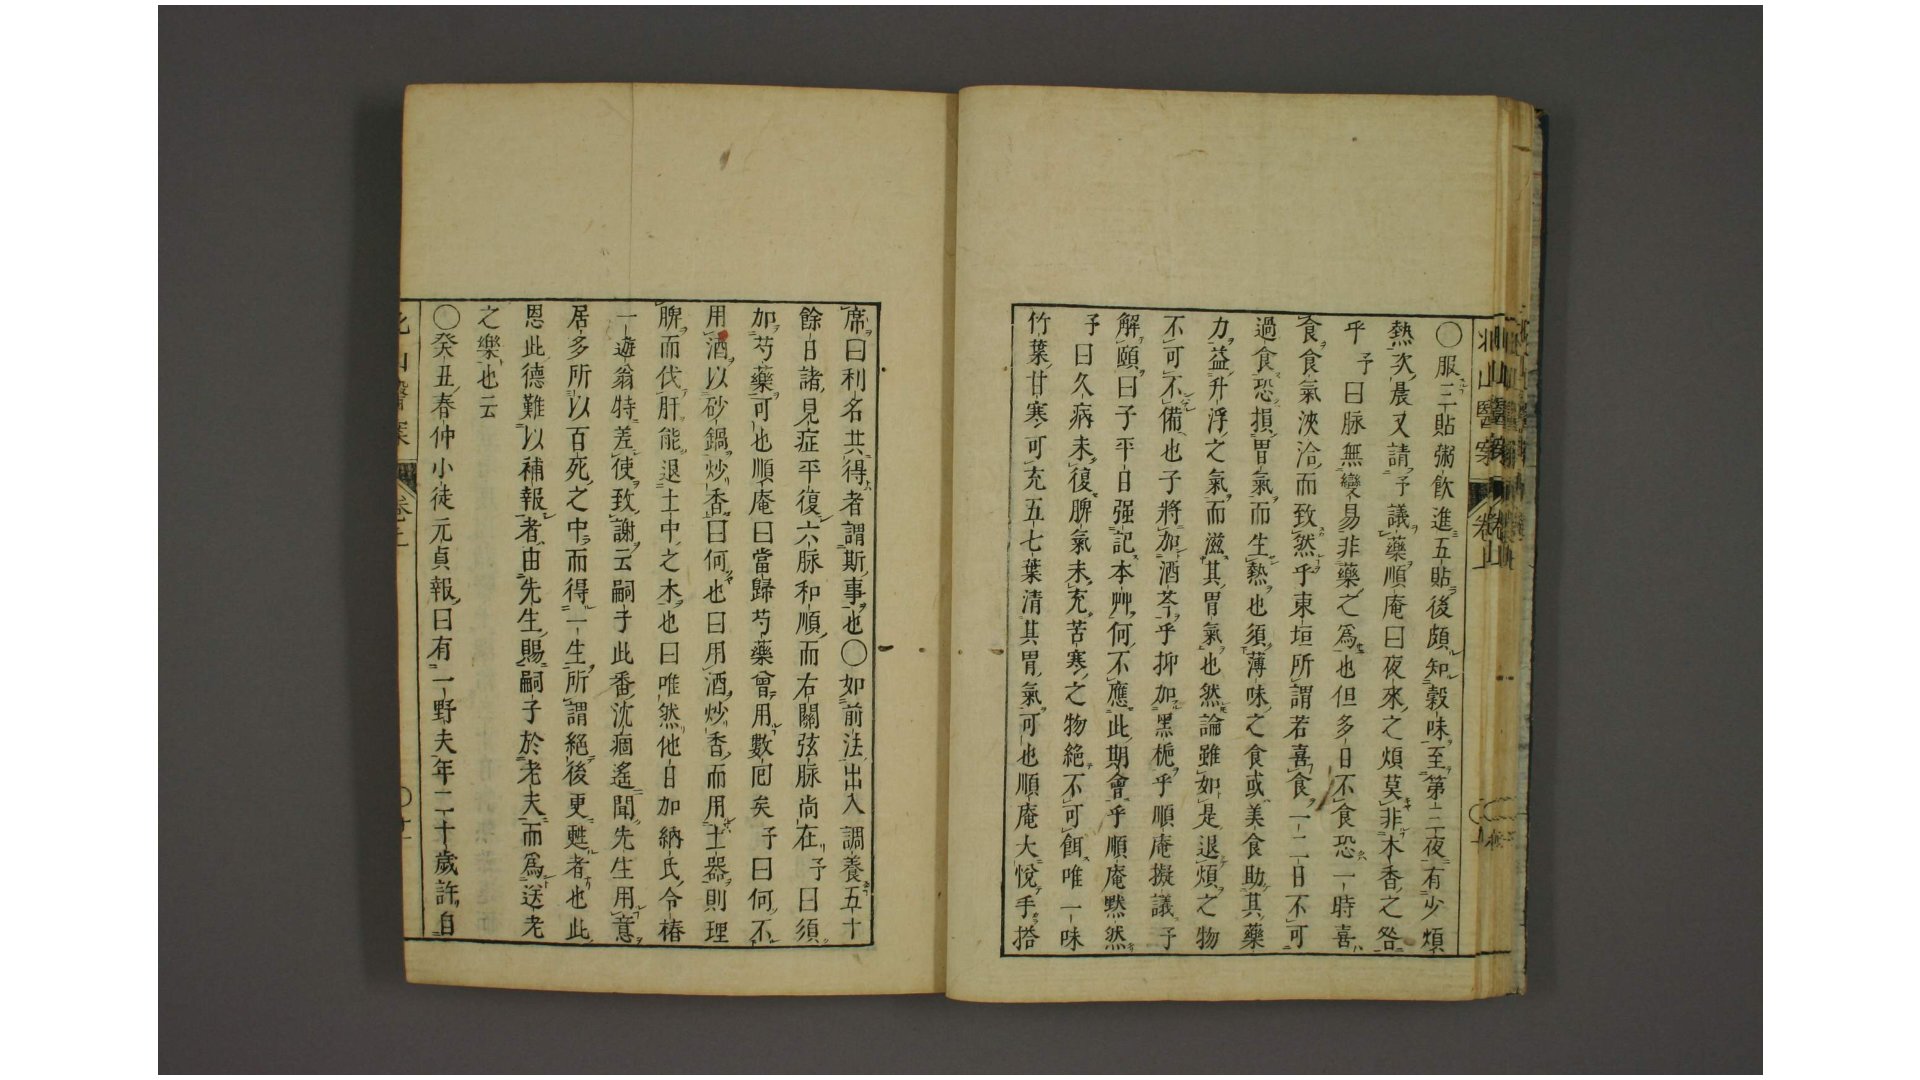 北山醫案 卷上
○服三貼粥飲進五貼後頗知穀味至第二夜有少煩
熱次晨又請予議藥順庵曰夜來之煩莫非木香之咎
乎 予曰脉無變易非藥之爲也但多日不食恐一時喜
食食氣浹洽而致然乎東垣所謂若喜食一二日不可
過食恐損胃氣而生熱也須薄味之食或美食助其藥
力益升浮之氣而滋其胃氣也然論雖如是退煩之物
不可不備也子將加酒芩乎抑加黑梔乎順庵擬議予
解頤曰子平日强記本艸何不應此期會乎順庵黙然
予曰久病未復脾氣未充苦寒之物絶不可餌唯一味
竹葉甘寒可充五七葉清其胃氣可也順庵大悅手搭
席曰利名共得者謂斯事也○如前法出入調養五十
餘日諸見症平復六脉和順而右關弦脉尚在 予曰須
加芍藥可也順庵曰當歸芍藥曾用數回矣 予曰何不
用酒以砂鍋炒香曰何也曰用酒炒香而用土器則理
脾而伐肝能退土中之木也曰唯然他日加納氏令椿
一遊翁特差使致謝云嗣子此番沈痼遙聞先生用意
居多所以百死之中而得一生所謂絶後更甦者也此
恩此德難以補報者由先生賜嗣子於老夫而爲送老
之樂也云
○癸丑春仲小徒元貞報曰有一野夫年二十歲許自